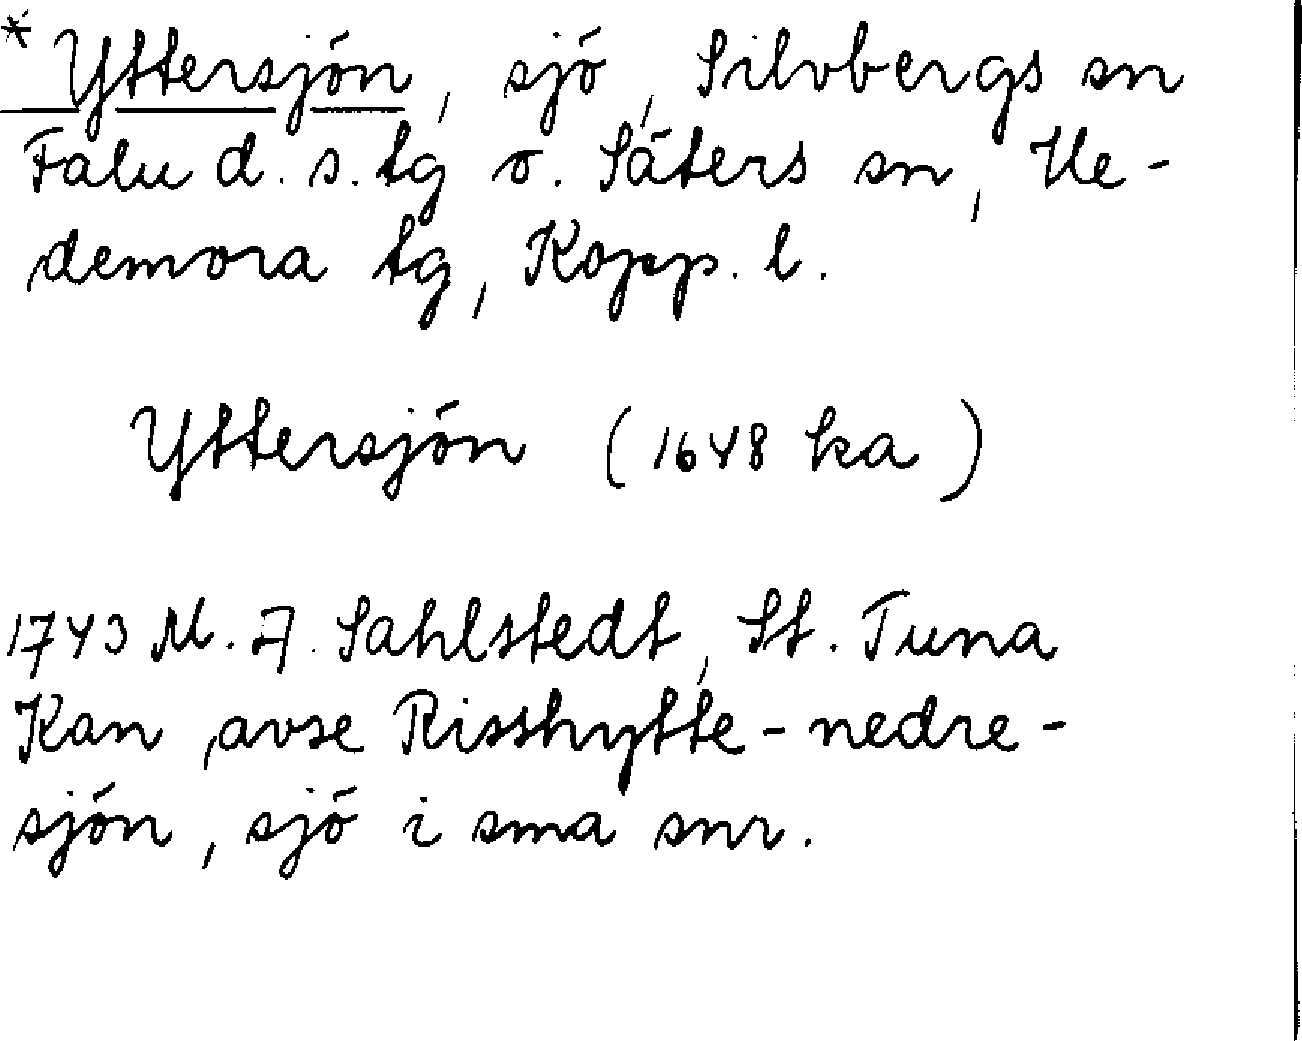 * Yttersjön, sjö, Silvbergs sn
Falu d. s. tg o. Säters sn, He-
demora tg, Kopp. l.
Yttersjön (1648 ka)
1743 M. A. Sahlstedt, St. Tuna
Kan avse Risshytte-nedre-
sjön, sjö i sma snr.